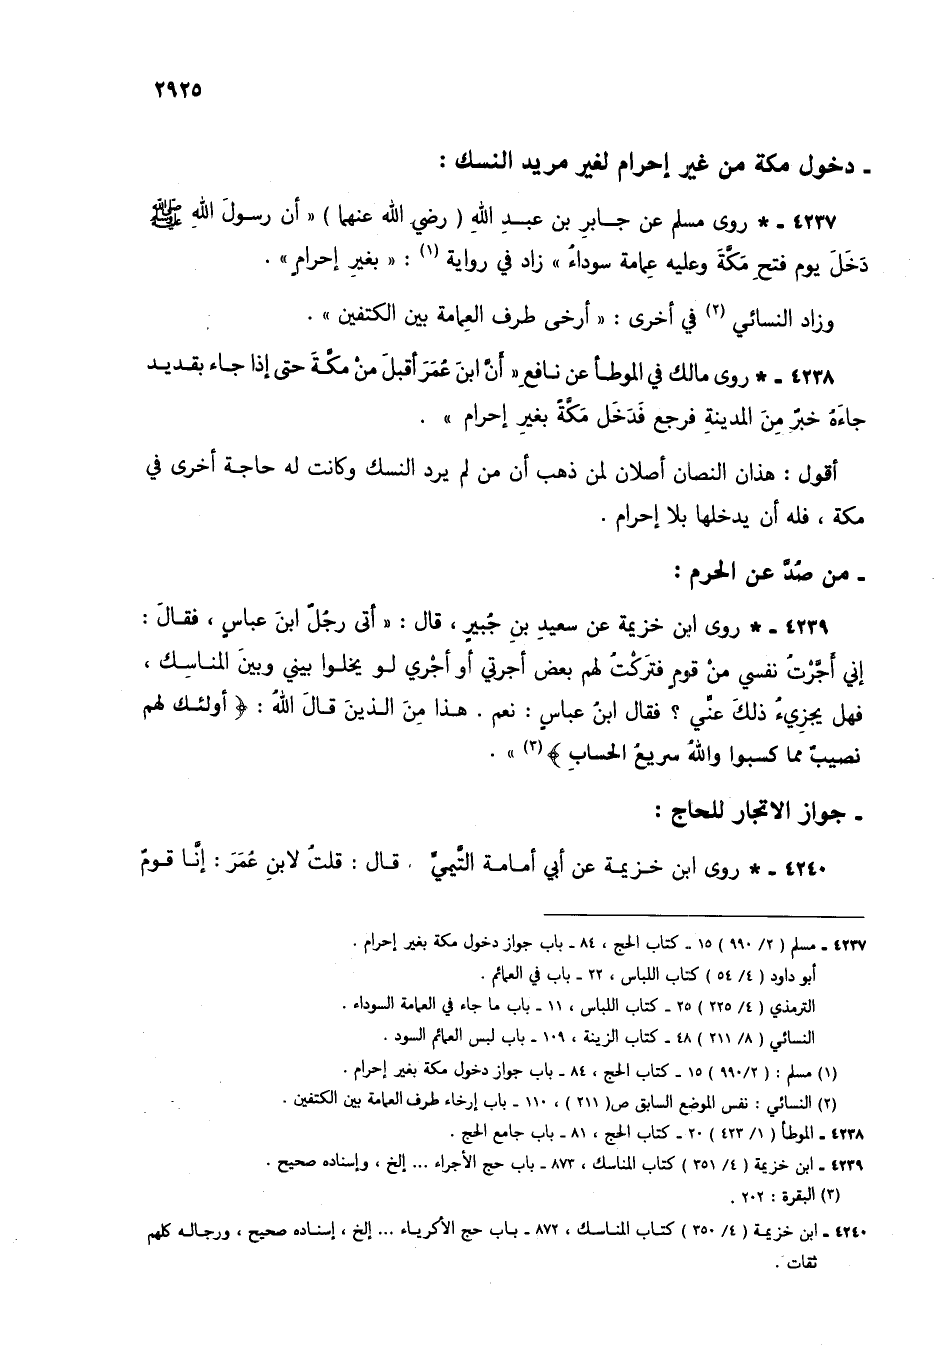 ٢٩٢٥
ـ دخول مكة من غير إحرام لغير مريد النسك :
٤٢٣٧ ـ * روى مسلم عن جـابرِ بن عبـدِ اللهِ ( رضي الله عنهما ) « أن رسولَ اللهِ ﷺ
دَخَلَ يوم فتحِ مَكَّةَ وعليه عِمامة سوداءُ » زاد في رواية (١) : « بغيرِ إحرامٍ » .
وزاد النسائي (٢) في أخرى : « أرخى طرف العِمامة بين الكتفين » .
٤٢٣٨ ـ * روى مالك في الموطـأ عن نـافعٍ « أنَّ ابنَ عُمَرَ أقبلَ منْ مكَّـةَ حتى إذا جـاء بقـديـد
جاءَهُ خبرٌ مِنَ المدينةِ فرجع فَدَخَل مَكَّةَ بغيرِ إحرام » .
أقول : هذان النصان أصلان لمن ذهب أن من لم يرد النسك وكانت له حاجـة أخرى في
مكة ، فله أن يدخلها بلا إحرام .
ـ من صُدَّ عن الحرم :
٤٢٣٩ ـ * روى ابن خزيمة عن سعيدِ بنِ جُبيرٍ ، قال : « أتى رجُلٌ ابنَ عباسٍ ، فقـالَ :
إني أَجَّرْتُ نفسي منْ قومٍ فتَركْتُ لهم بعض أجرتي أو أجْري لـو يخلـوا بيني وبينَ المنـاسـكِ ،
فهل يجزيءُ ذلكَ عنِّي ؟ فقال ابنُ عباس : نعم . هـذا مِنَ الـذينَ قـالَ اللهُ : ﴿ أولئـك لهم
نصيبٌ مما كسبوا واللهُ سريعُ الحسابِ ﴾ (٣) » .
ـ جواز الاتجار للحاج :
٤٢٤٠ ـ * روى ابن خـزيمـة عن أبي أمـامـة التَّيميِّ . قـال : قلتُ لابنِ عُمَرَ : إنَّـا قـومٌ
٤٢٣٧ ـ مسلم ( ٢/ ٩٩٠ ) ١٥ ـ كتاب الحج ، ٨٤ ـ باب جواز دخول مكة بغير إحرام .
أبو داود ( ٤/ ٥٤ ) كتاب اللباس ، ٢٢ ـ باب في العمائم .
الترمذي ( ٤/ ٢٢٥ ) ٢٥ ـ كتاب اللباس ، ١١ ـ باب ما جاء في العمامة السوداء .
النسائي ( ٨/ ٢١١ ) ٤٨ ـ كتاب الزينة ، ١٠٩ ـ باب لبس العمائم السود .
(١) مسلم : ( ٩٩٠/٢ ) ١٥ ـ كتاب الحج ، ٨٤ ـ باب جواز دخول مكة بغير إحرام .
(٢) النسائي : نفس الموضع السابق ص( ٢١١ ) ، ١١٠ ـ باب إرخاء طرف العمامة بين الكتفين .
٤٢٣٨ ـ الموطأ ( ١/ ٤٢٣ ) ٢٠ ـ كتاب الحج ، ٨١ ـ باب جامع الحج .
٤٢٣٩ ـ ابن خزيمة ( ٤/ ٣٥١ ) كتاب المناسك ، ٨٧٣ ـ باب حج الأجراء ... إلخ ، وإسناده صحيح .
(٣) البقرة : ٢٠٢ .
٤٢٤٠ ـ ابن خزيمـة ( ٤/ ٣٥٠ ) كتـاب المنـاسـك ، ٨٧٢ ـ بـاب حج الأكريـاء ... إلخ ، إسنـاده صحيح ، ورجـالـه كلهم
ثقات .